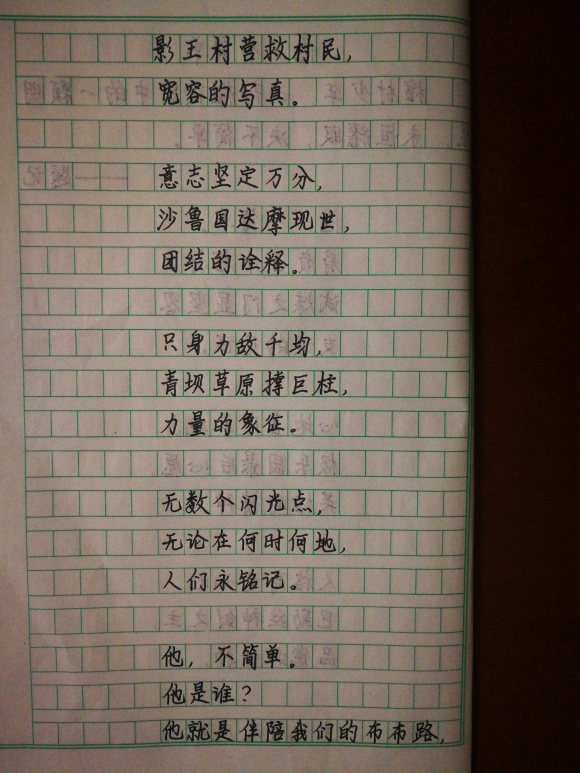 影王村营救村民，
宽容的写真。
意志坚定万分，
沙鲁国达摩现世，
团结的诠释。
只身力敌千均，
青坝草原撑巨柱，
力量的象征。
无数个闪光点，
无论在何时何地，
人们永铭记。
他，不简单。
他是谁？
他就是伴陪我们的布布路，